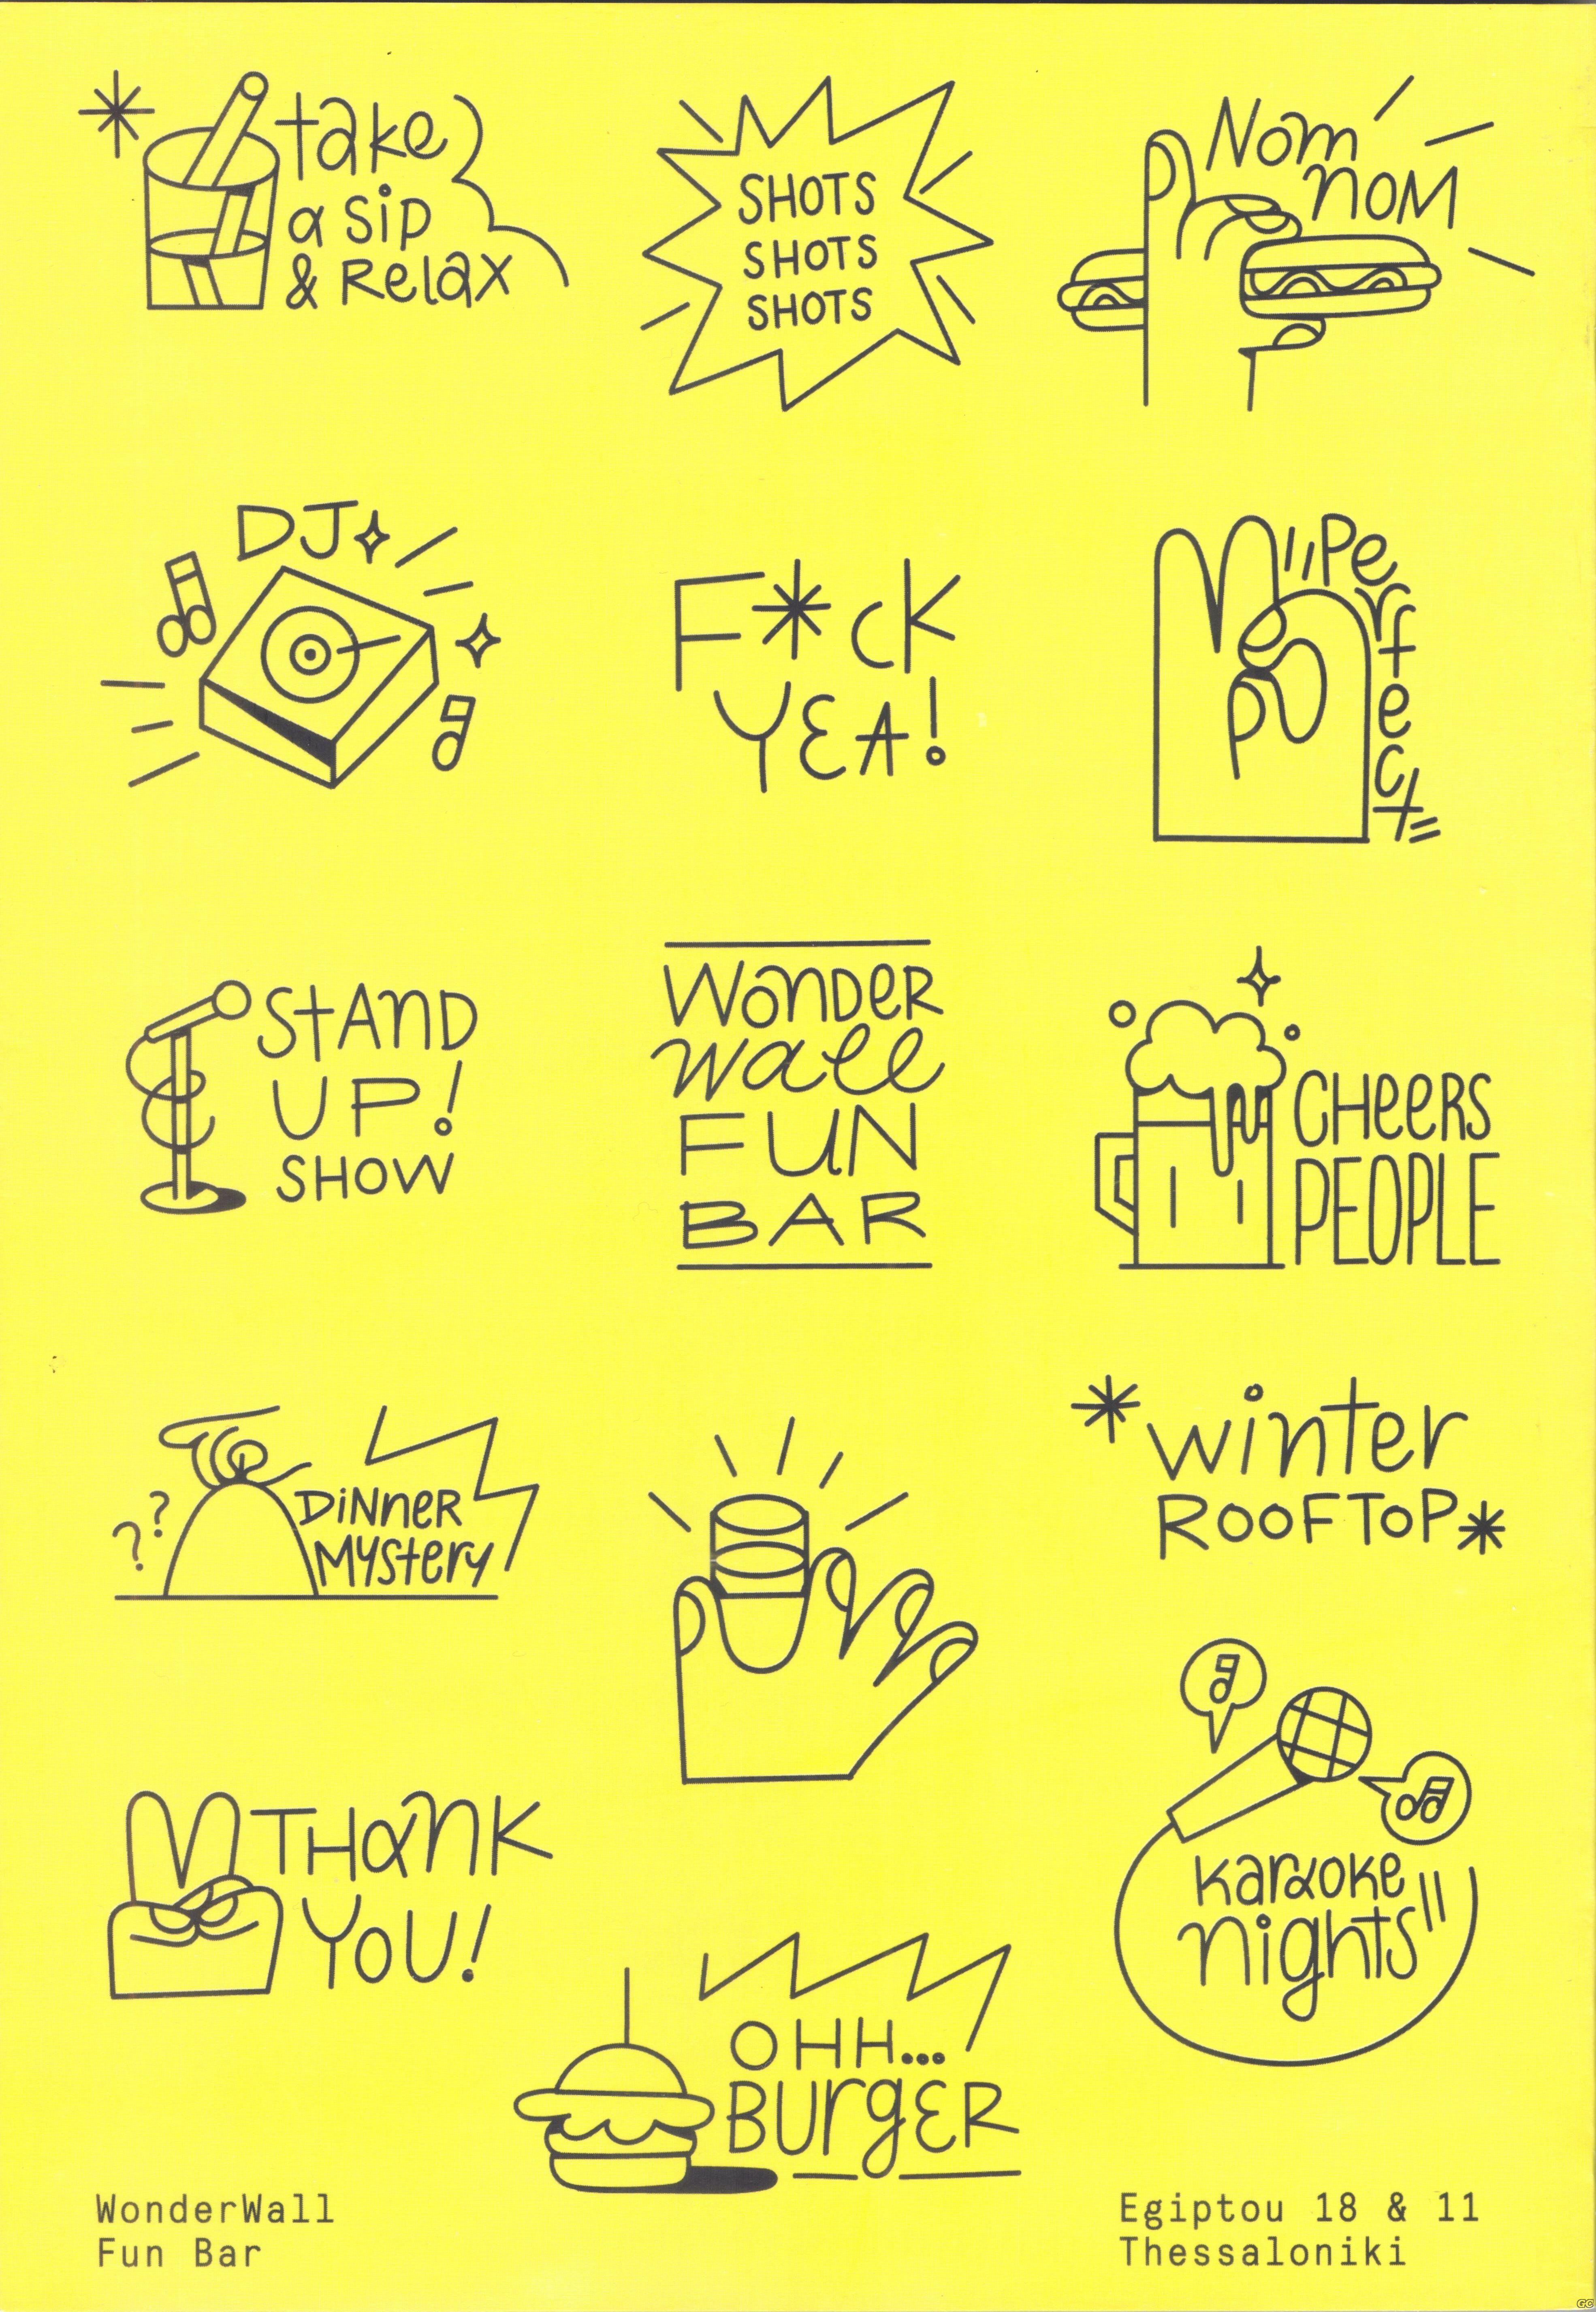 take
a sip
& Relax
SHOTS
SHOTS
SHOTS
Nom
nom
DJ
F*ck
YEA!
Perfect
StAnD
UP!
SHOW
WonDeR
wall
FUN
BAR
CHeeRS
PEOPLE
??
DiNneR
MYstery
winter
ROOFTOP
THank
YOU!
karaoke
nights
OHH...
BURgER
WonderWall
Fun Bar
Egiptou 18 & 11
Thessaloniki
GC